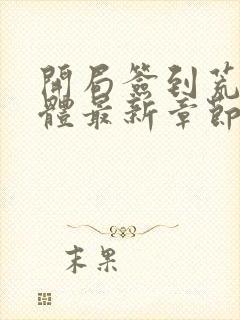 開局簽到荒
體最新章節
末果